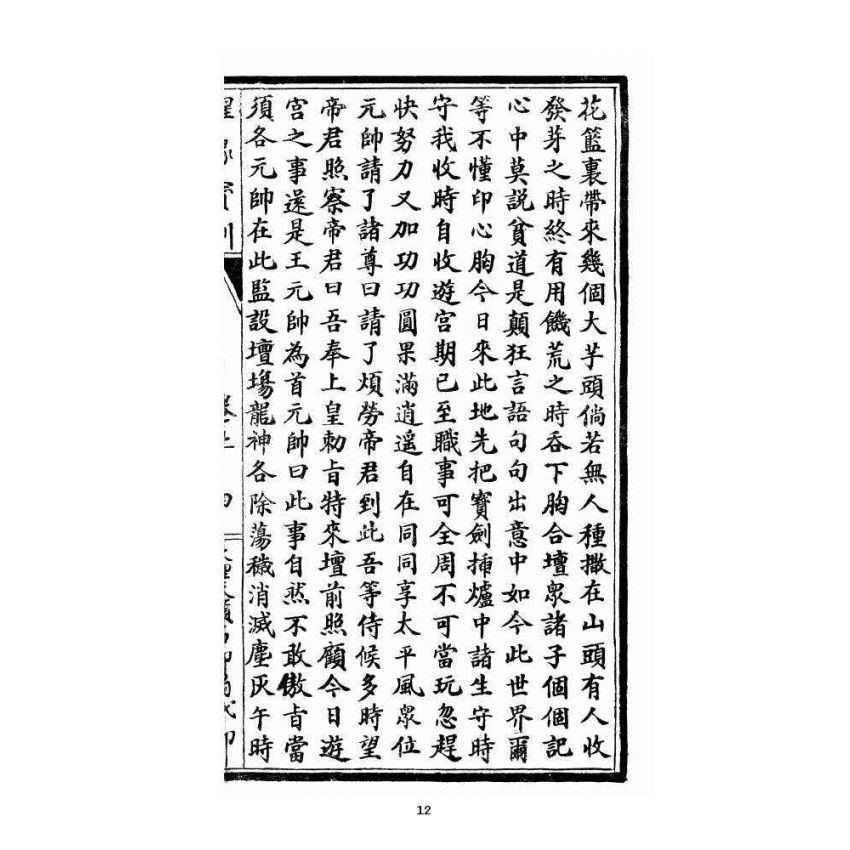 花籃裏帶來幾個大芋頭倘若無人種撒在山頭有人收
發芽之時終有用饑荒之時吞下胸合壇眾諸子個個記
心中莫説貧道是顛狂言語句句出意中如今此世界爾
等不懂印心胸今日來此地先把寶劍插爐中諸生守時
守我收時自收遊宮期已至職事可全周不可當玩忽趕
快努力又加功功圓果滿逍遥自在同同享太平風眾位
元帥請了諸尊曰請了煩勞帝君到此吾等侍候多時望
帝君照察帝君曰吾奉上皇勅旨特來壇前照顧今日遊
宮之事還是王元帥為首元帥曰此事自然不敢傲旨當
須各元帥在此監設壇塲龍神各除蕩穢消滅塵灰午時
12